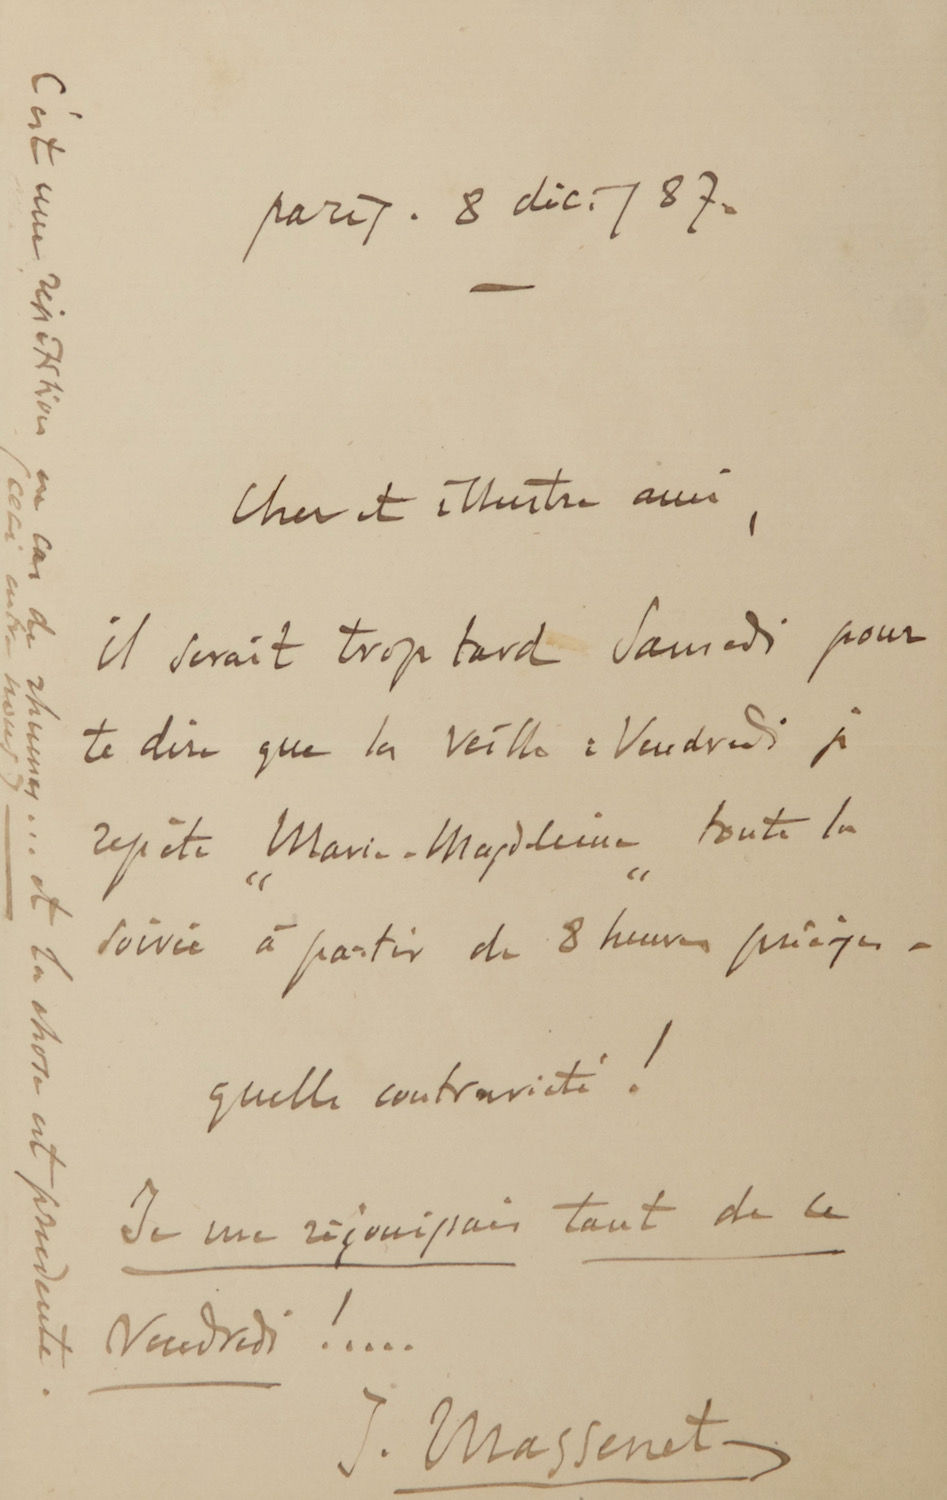 paris. 8 déc. / 87.
Cher et illustre ami,
il serait trop tard Samedi pour
te dire que la veille : Vendredi je
repète „Marie-Magdeleine„ toute la
soirée à partir de 8 heures précises -
quelle contrariété !
Je me réjouissais tant de ce
Vendredi !....
J. Massenet
C'est une répétition en cas de rhumes... et la chose est prudente.
(ceci entre nous)